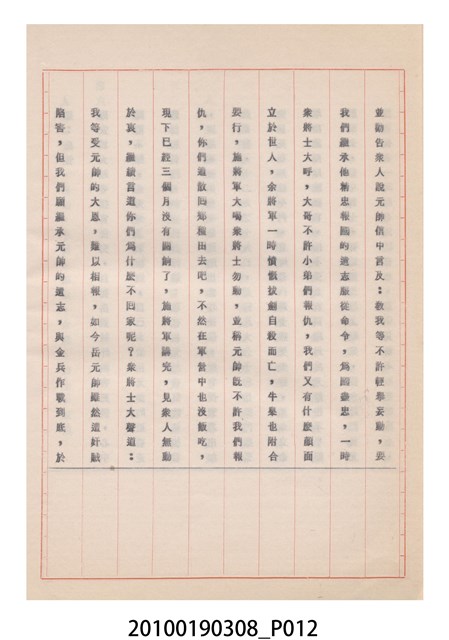 並勸告衆人說元帥信中言及：教我等不許輕舉妄動，要
我們繼承他精忠報國的遺志服從命令，爲國盡忠，一時
衆將士大呼，大哥不許小弟們報仇，我們又有什麼顏面
立於世人，余將軍一時憤慨拔劍自殺而亡，牛臯也附合
要行，施將軍大喝衆將士勿動，並稱元帥既不許我們報
仇，你們過散回鄉種田去吧，不然在軍營中也沒飯吃，
現下已經三個月沒有關餉了，施將軍講完，見衆人無動
於衷，繼續言道你們爲什麼不回家呢？衆將士大聲道：
我等受元帥的大恩，難以相報，如今岳元帥雖然遭奸賊
陷害，但我們願繼承元帥的遺志，與金兵作戰到底，於
20100190308_P012